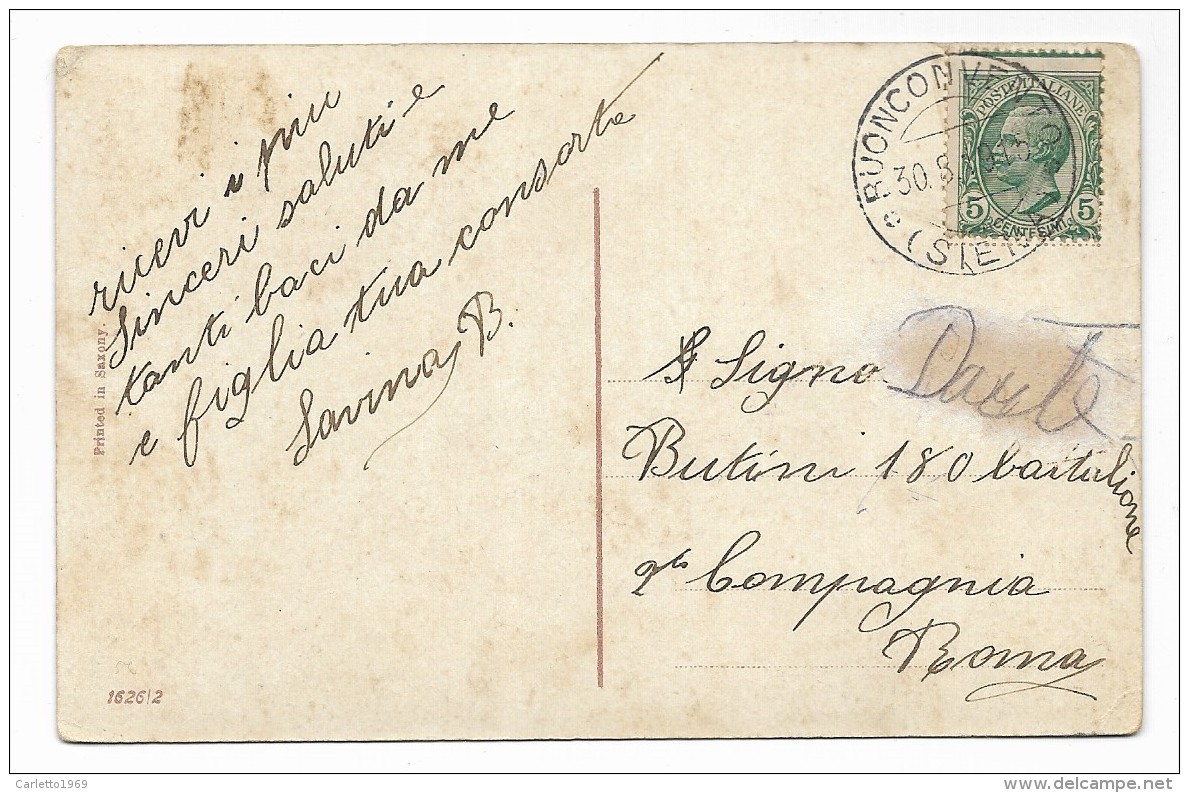 ricevi i piu
Sinceri saluti e
tanti baci da me
e figlia tua consorte
Savina B.
Printed in Saxony.
1626/2
BUONCONVENTO
(SIENA)
30.8
POSTE ITALIANE
5 CENTESIMI 5
Signo Dante
Butini 180 battalione
Compagnia
Roma
Carletto1969
www.delcampe.net